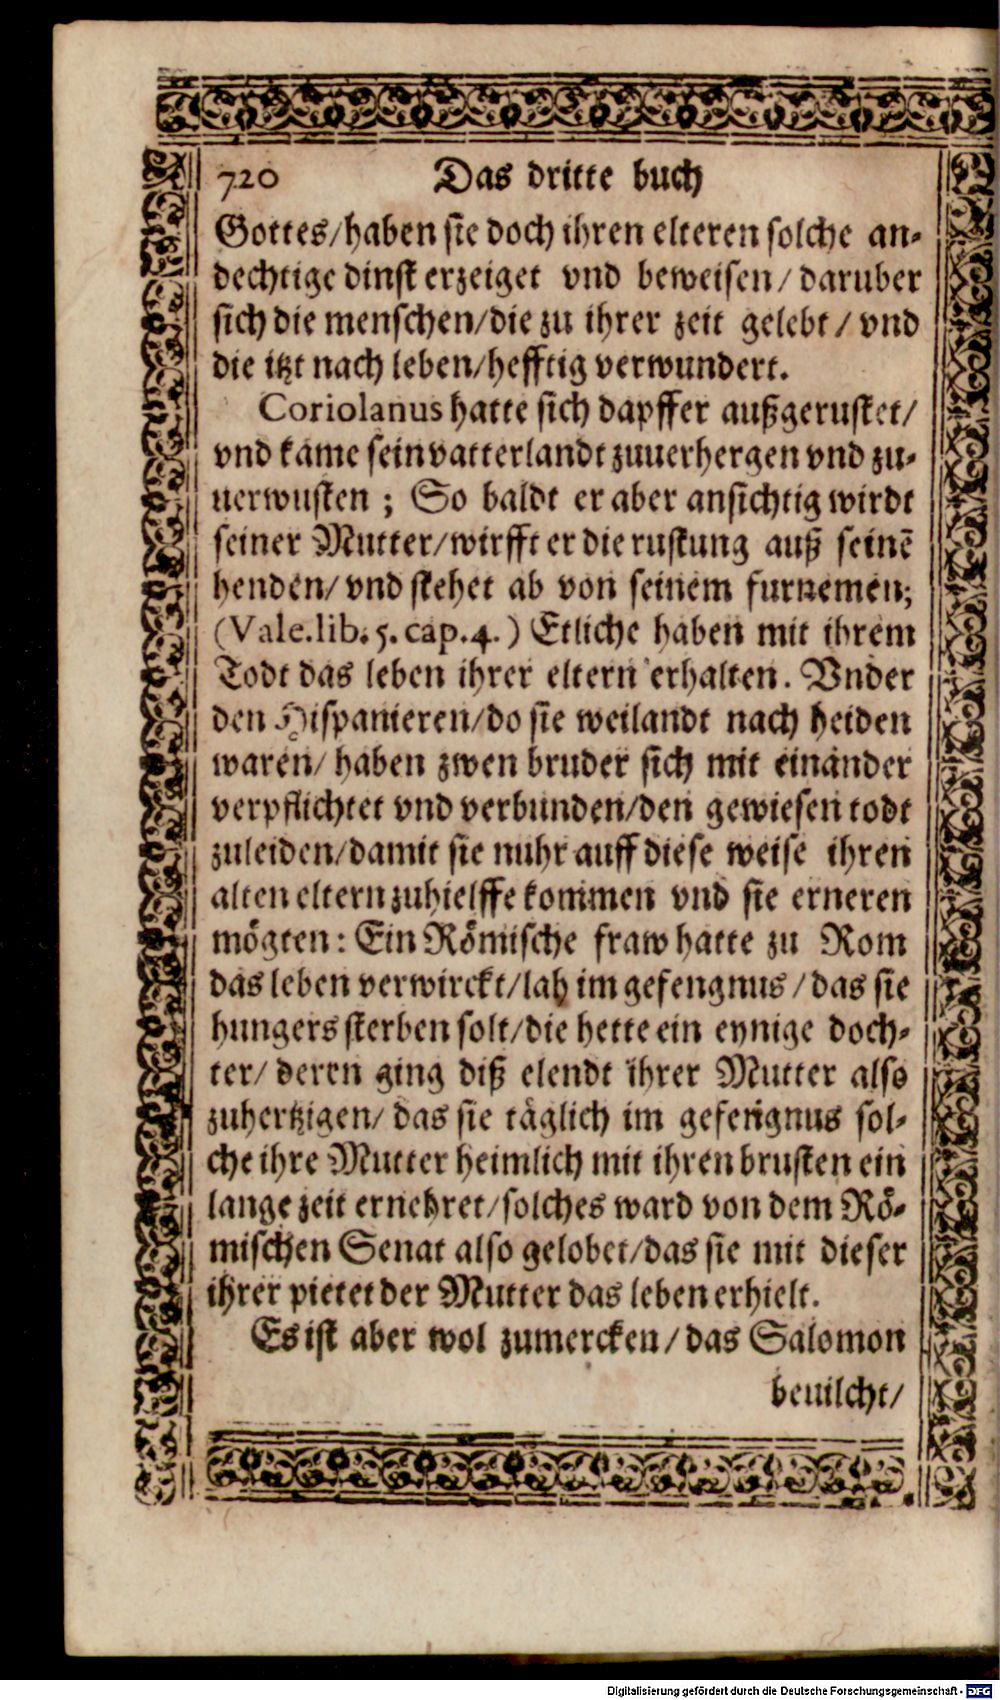 720 Das dritte buch
Gottes/haben sie doch ihren elteren solche an-
dechtige dinst erzeiget vnd beweisen/ daruber
sich die menschen/die zu ihrer zeit gelebt/ vnd
die itzt nach leben/hefftig verwundert.
Coriolanus hatte sich dapffer außgerustet/
vnd kame sein vatterlandt zuuerhergen vnd zu-
uerwusten; So baldt er aber ansichtig wirdt
seiner Mutter/wirfft er die rustung auß seinē
henden/ vnd stehet ab von seinem furnemen;
(Vale.lib.5.cap.4.) Etliche haben mit ihrem
Todt das leben ihrer eltern erhalten. Vnder
den Hispanieren/do sie weilandt nach heiden
waren/ haben zwen bruder sich mit einander
verpflichtet vnd verbunden/den gewiesen todt
zuleiden/damit sie nuhr auff diese weise ihren
alten eltern zuhielffe kommen vnd sie erneren
mögten: Ein Römische fraw hatte zu Rom
das leben verwirckt/lah im gefengnus/das sie
hungers sterben solt/die hette ein eynige doch-
ter/ deren ging diß elendt ihrer Mutter also
zuhertzigen/ das sie täglich im gefengnus sol-
che ihre Mutter heimlich mit ihren brusten ein
lange zeit ernehret/solches ward von dem Rö-
mischen Senat also gelobet/das sie mit dieser
ihrer pietet der Mutter das leben erhielt.
Es ist aber wol zumercken/das Salomon
beuilcht/
Digitalisierung gefördert durch die Deutsche Forschungsgemeinschaft - DFG